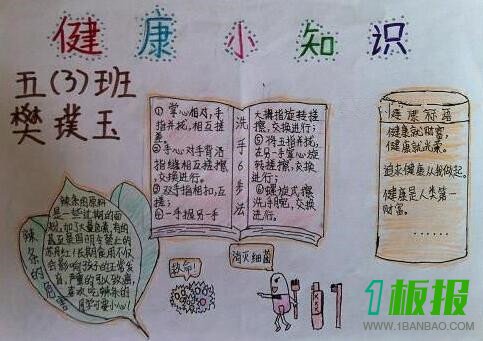 健康小知识
五(3)班
樊璞玉
①掌心相对,手
指并拢,相互搓
擦;
②手心对手背沿
指缝相互搓擦,
交换进行。
③双手指相扣,互
搓;
④一手握另一手
大拇指旋转搓
擦,交换进行;
⑤将五指并拢,
在另一手掌心旋
转搓擦,交换进
行;
⑥螺旋式擦
洗手腕,交替
进行。
洗手6步法
健康标语
健康就财富,
健康就光荣。
追求健康从我做起。
健康是人类第一
财富。
……
辣条的危害
辣条的原料
是一些过期的面
粉,加了大量色素,有的
甚至是因明令禁止的
苏丹红1长期食用不仅
会影响孩子的正常发
育,严重的可以致癌,
喜欢吃辣条的
同学可要小心!
救命!
消灭细菌
1板报
WWW.1BANBAO.COM